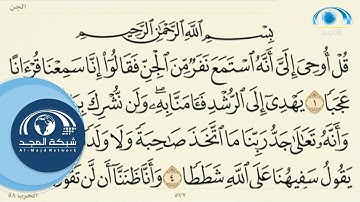 الجن
بِسْمِ ٱللَّهِ ٱلرَّحْمَٰنِ ٱلرَّحِيمِ
قُلْ أُوحِىَ إِلَىَّ أَنَّهُ ٱسْتَمَعَ نَفَرٌ مِّنَ ٱلْجِنِّ فَقَالُوٓا۟ إِنَّا سَمِعْنَا قُرْءَانًا
عَجَبًا ١ يَهْدِىٓ إِلَى ٱلرُّشْدِ فَـَٔامَنَّا بِهِۦ وَلَن نُّشْرِكَ
وَأَنَّهُۥ تَعَٰلَىٰ جَدُّ رَبِّنَا مَا ٱتَّخَذَ صَٰحِبَةً وَلَا وَلَدًا
يَقُولُ سَفِيهُنَا عَلَى ٱللَّهِ شَطَطًا ٤ وَأَنَّا ظَنَنَّآ أَن لَّن تَقُولَ
٥٧٢
الحزب ٥٨
شبكة المجد
Al-Majd Network